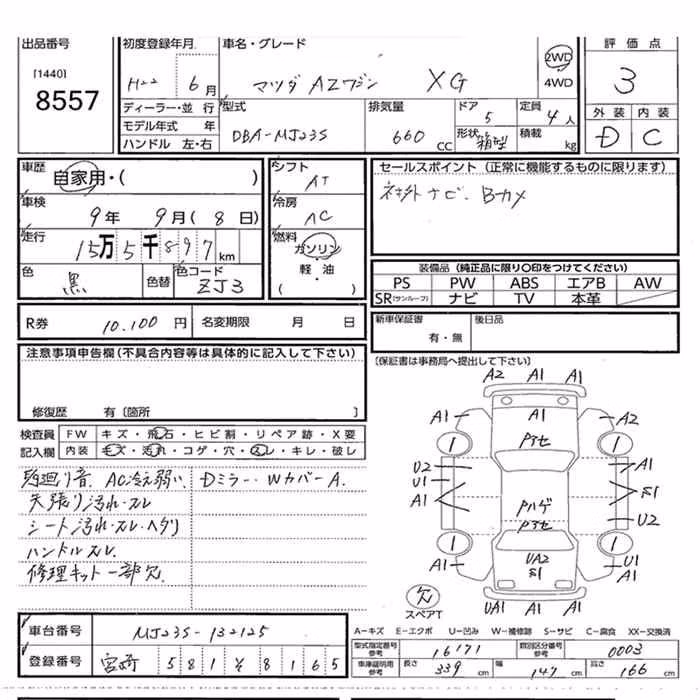 出品番号 初度登録年月 車名・グレード 評価点
[1440] H22 6月 マツダ AZワゴン XG 2WD 4WD 3
8557
ディーラー・並行 型式 排気量 ドア 定員 外装 内装
モデル年式 年 DBA-MJ23S 660 CC 5 4人 D C
ハンドル 左・右 形状 箱型 積載 kg
車歴 自家用・( ) シフト AT
セールスポイント (正常に機能するものに限ります)
社外ナビ. Bカメ
車検 9年 9月(8日) 冷房 AC
走行 15万5千897km 燃料 ガソリン・軽・油 ( )
色 黒 色替 色コード ZJ3
装備品 (純正品に限り〇印をつけてください)
PS PW ABS エアB AW
SR(サンルーフ) ナビ TV 本革
R券 10.100円 名変期限 月 日
新車保証書 有・無 後日品
(保証書は事務局へ提出して下さい)
注意事項申告欄(不具合内容等は具体的に記入して下さい)
修復歴 有〔箇所 〕
検査員 FW キズ・飛石・ヒビ割・リペア跡・X要
記入欄 内装 モズ・汚れ・コゲ・穴・スレ・キレ・破レ
廻り音. AC冷え弱い. Dミラー・WカバーA.
天張り汚れ・スレ
シート汚れ・スレ・ヘタリ
ハンドルスレ.
修理キット一部欠
A2 A1 A1
A1 A1 A2
アセ
U2 A1
U1
A1 S1
アハゲ U2
アセ
A1 UA2 S1 U1 A1
欠 スペアT UA1 A1 A1
A-キズ E-エクボ U-凹み W-補修跡 S-サビ C-腐食 XX-交換済
車台番号 MJ23S-132125
型式指定番号参考 16171 類別区分番号参考 0003
登録番号 宮崎 581 8165
車庫証明用参考 長さ 339cm 幅 147cm 高さ 166cm